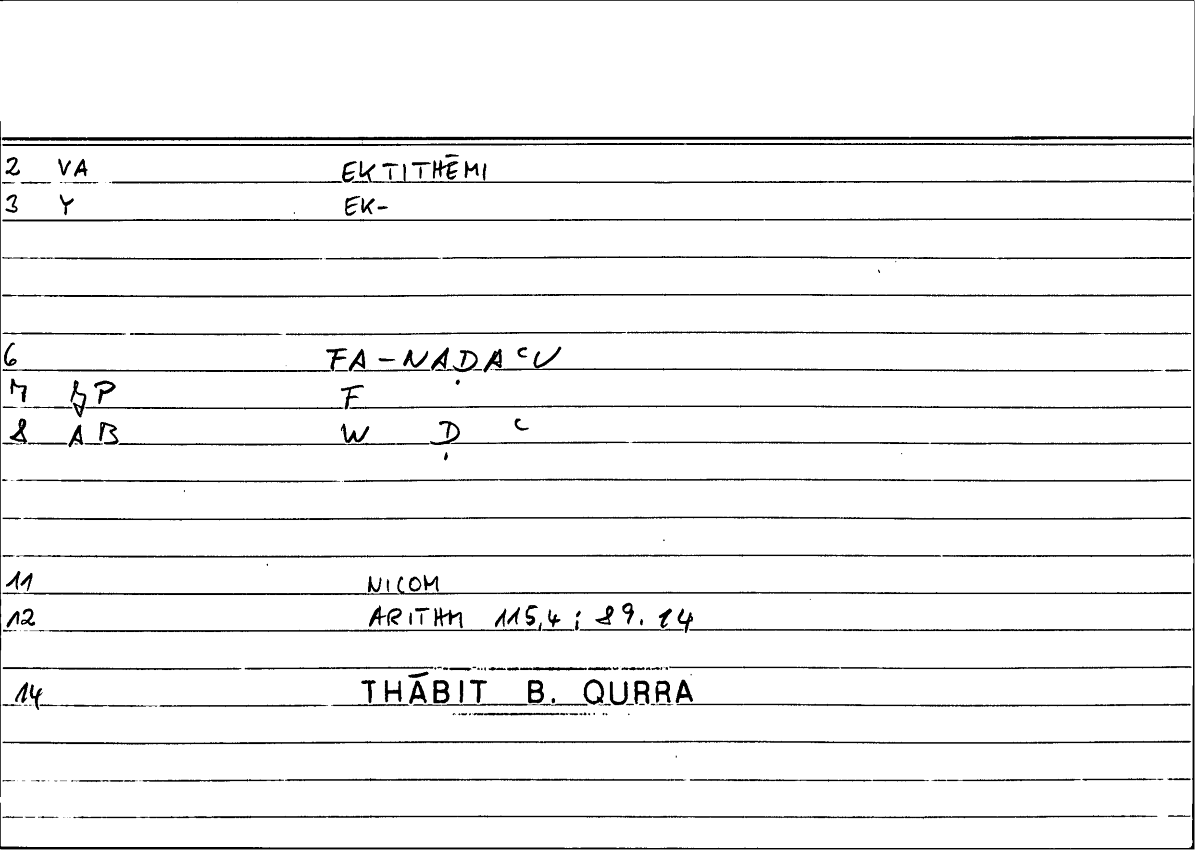 2 VA EKTITHĒMI
3 Y EK-
6 FA-NAḌAʿU
7 P F
8 AB W Ḍ ʿ
11 NICOM
12 ARITHM 115,4; 89.14
14 THĀBIT B. QURRA